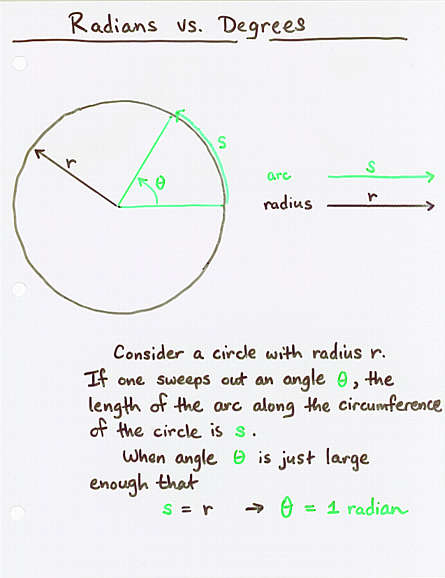 Radians vs. Degrees
r
s
θ
arc s
radius r
Consider a circle with radius r.
If one sweeps out an angle θ, the
length of the arc along the circumference
of the circle is s.
When angle θ is just large
enough that
s = r → θ = 1 radian